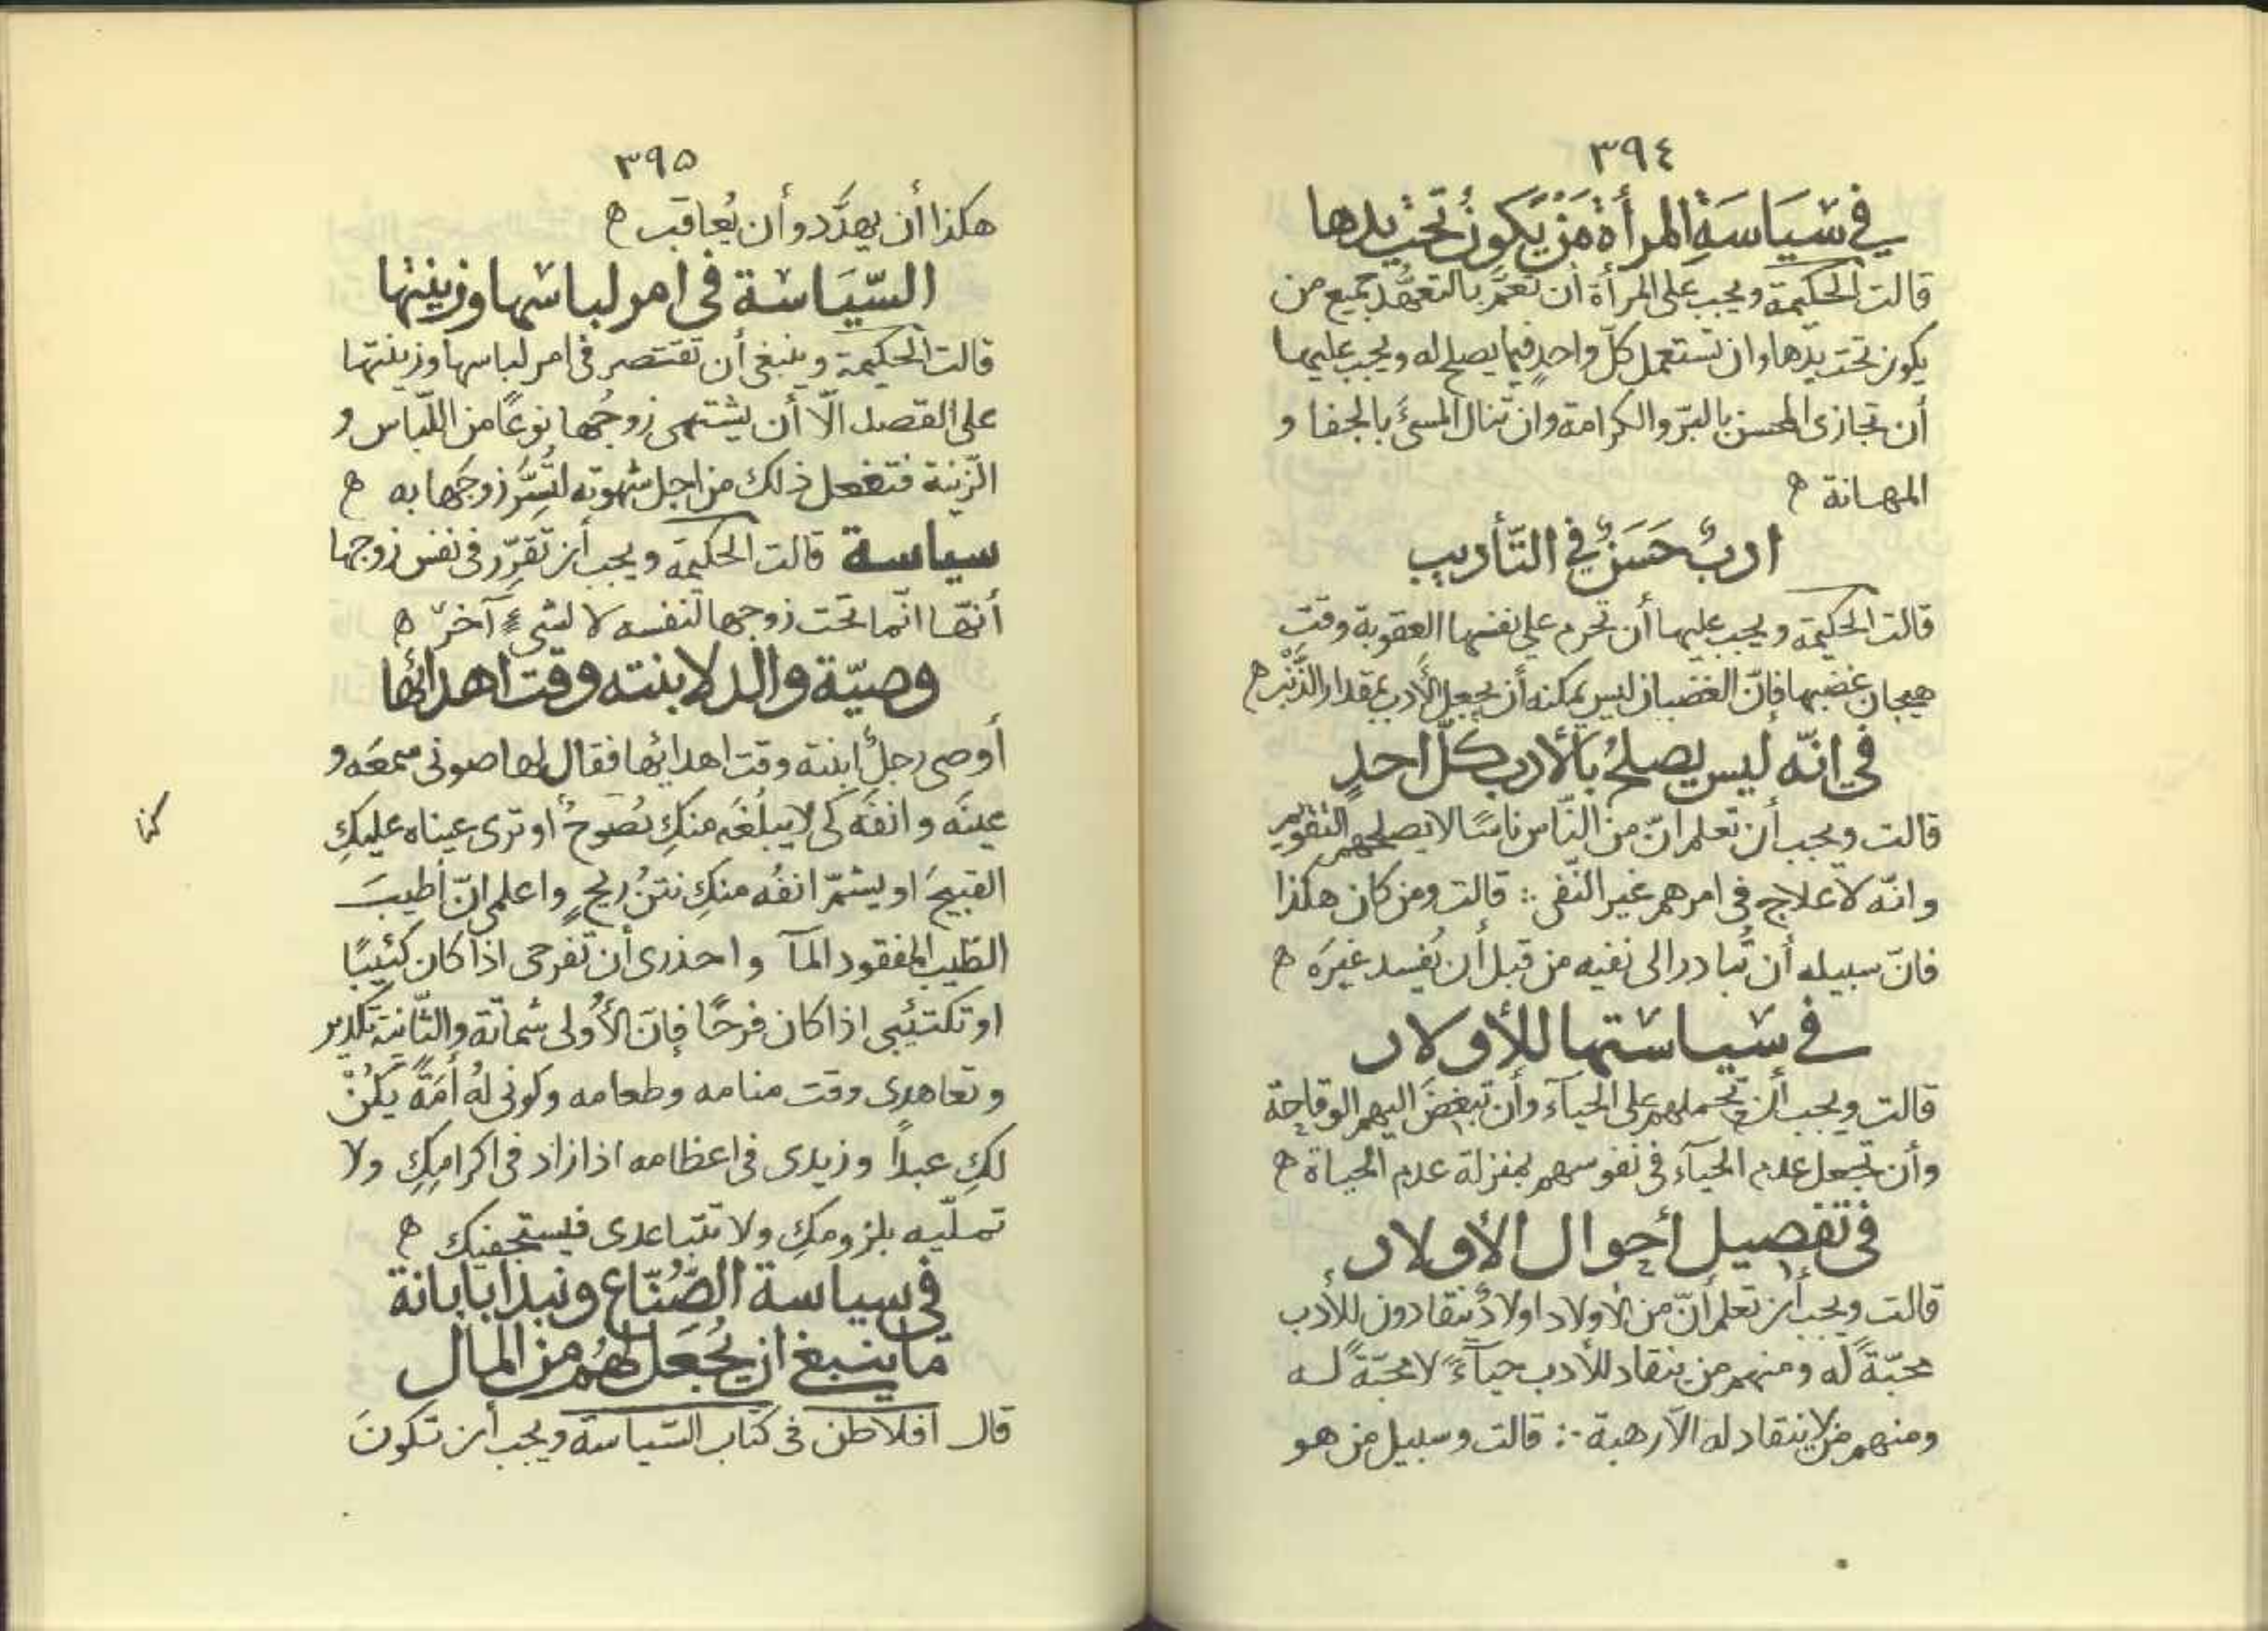 ٣٩٤
في سِيَاسَةِ المرأة مَنْ يَكونُ تحتَ يدها
قالت الحكيمة ويجب على المرأة أن تعمَّ بالتعهُّد جميع من
يكون تحت يدها وان تستعمل كلّ واحدٍ فيما يصلح له ويجب عليها
أن تجازى المحسن بالبرّ والكرامة وان تنال المسئَ بالجفا و
المهانة ه
ادبٌ حَسَنٌ في التّأديب
قالت الحكيمة ويجب عليها أن تحرم على نفسها العقوبة وقتَ
هيجان غضبها فإنّ الغضبان ليس يمكنه أن يجعل الأدب بمقدار الذَّنْب ه
في انّه ليس يصلحُ بالأدب كلّ احدٍ
قالت ويجب أن تعلم انّ من النّاس ناسًا لا يصلحهم التقويم
وانّه لا علاج في امرهم غير النّفى ؞ قالت ومن كان هكذا
فانّ سبيله أن تُبادر الى نفيه من قبل أن يُفسد غيرَه ه
في سياستها للأولاد
قالت ويجب أن تحملهم على الحيآء وأن تبغضَ اليهم الوقاحة
وأن تجعل عدم الحيآء في نفوسهم بمنزلة عدم الحياة ه
في تفصيل أحوال الأولاد
قالت ويجب أن تعلم أنّ من الأولاد اولادٌ ينقادون للأدب
محبّةً له ومنهم من ينقاد للأدب حيآءً لا محبّةً له
ومنهم من لا ينقاد له الّا رهبة ؞ قالت وسبيل من هو
٣٩٥
هكذا أن يهدَّد وأن يُعاقب ه
السّيَاسَة في امر لباسها وزينتها
قالت الحكيمة وينبغى أن تقتصر في امر لباسها وزينتها
على القصد الّا أن يشتهى زوجُها نوعًا من اللّباس و
الزّينة فتفعل ذلك من اجل شهوته لتَسُرَّ زوجَها به ه
سياسة قالت الحكيمة ويجب أن تقرّر في نفس زوجها
أنّها انّما تحت زوجها لنفسه لا لشىءٍ آخر ه
وصيّة والد لابنته وقت اهدائها
أوصى رجلٌ ابنته وقت اهدائها فقال لها صونى سمعَه و
عينَه وانفَه كى لا يبلغَه منكِ نصُوحٌ أو ترى عيناه عليكِ
القبيحَ او يشمّ انفُه منكِ نتنُ ريحٍ واعلمى انّ أطيبَ
الطّيب المفقود المآ واحذرى أن تفرحى اذا كان كئيبًا
او تكتئبى اذا كان فرحًا فإنّ الأُولى شماتة والثّانية تكدير
وتعاهدى وقت منامه وطعامه وكونى لهُ أمَةً يَكُنْ
لكِ عبدًا وزيدى في اعظامه اذا زاد في اكرامكِ ولا
تملّيه بلزومكِ ولا تتباعدى فيستجفيك ه
في سياسة الصُّنّاع ونبدا بابانة
ما ينبغى ان يُجعَل لهُم من المال
قال افلاطن في كتاب السّياسة ويجب أن تكونَ
كذا